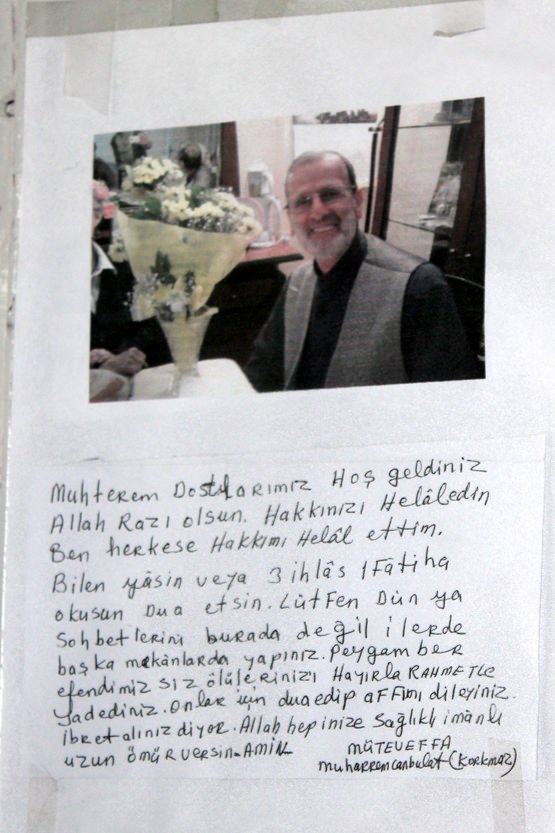 Muhterem Dostlarımız Hoş geldiniz
Allah Razı olsun. Hakkınızı Helâledin
Ben herkese Hakkımı Helâl ettim.
Bilen yâsin veya 3 ihlâs 1 Fâtiha
okusun Dua etsin. Lütfen Dün ya
Sohbetlerini burada değil ilerde
başka mekânlarda yapınız. Peygam ber
efendimiz siz ölülerinizi Hayırla RAHMETLE
Yadediniz. Onlar için duaedip aFFını dileyiniz.
ibret alınız diyor. Allah hepinize sağlıklı imânlı
uzun ömür versin-AMİN
MÜTEVEFFA
muharremcanbulat (Korkmaz)